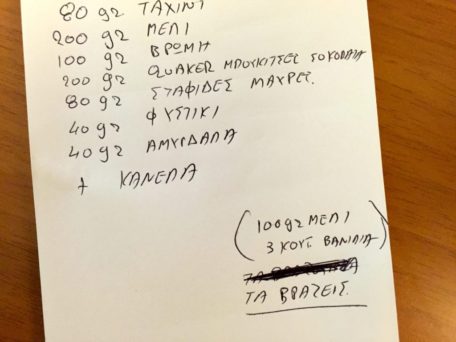 80 gr ΤΑΧΙΝΙ
200 gr ΜΕΛΙ
100 gr ΒΡΩΜΗ
200 gr QUAKER ΜΠΟΥΚΙΤΣΕΣ ΣΟΚΟΛΑΤΑ
80 gr ΣΤΑΦΙΔΕΣ ΜΑΥΡΕΣ.
40 gr ΦΥΣΤΙΚΙ
40 gr ΑΜΥΓΔΑΛΑ
+ ΚΑΝΕΛΛΑ
(100gr ΜΕΛΙ
3 ΚΟΥΤ. ΒΑΝΙΛΙΑ)
ΤΑ ΒΡΑΖΕΙΣ.